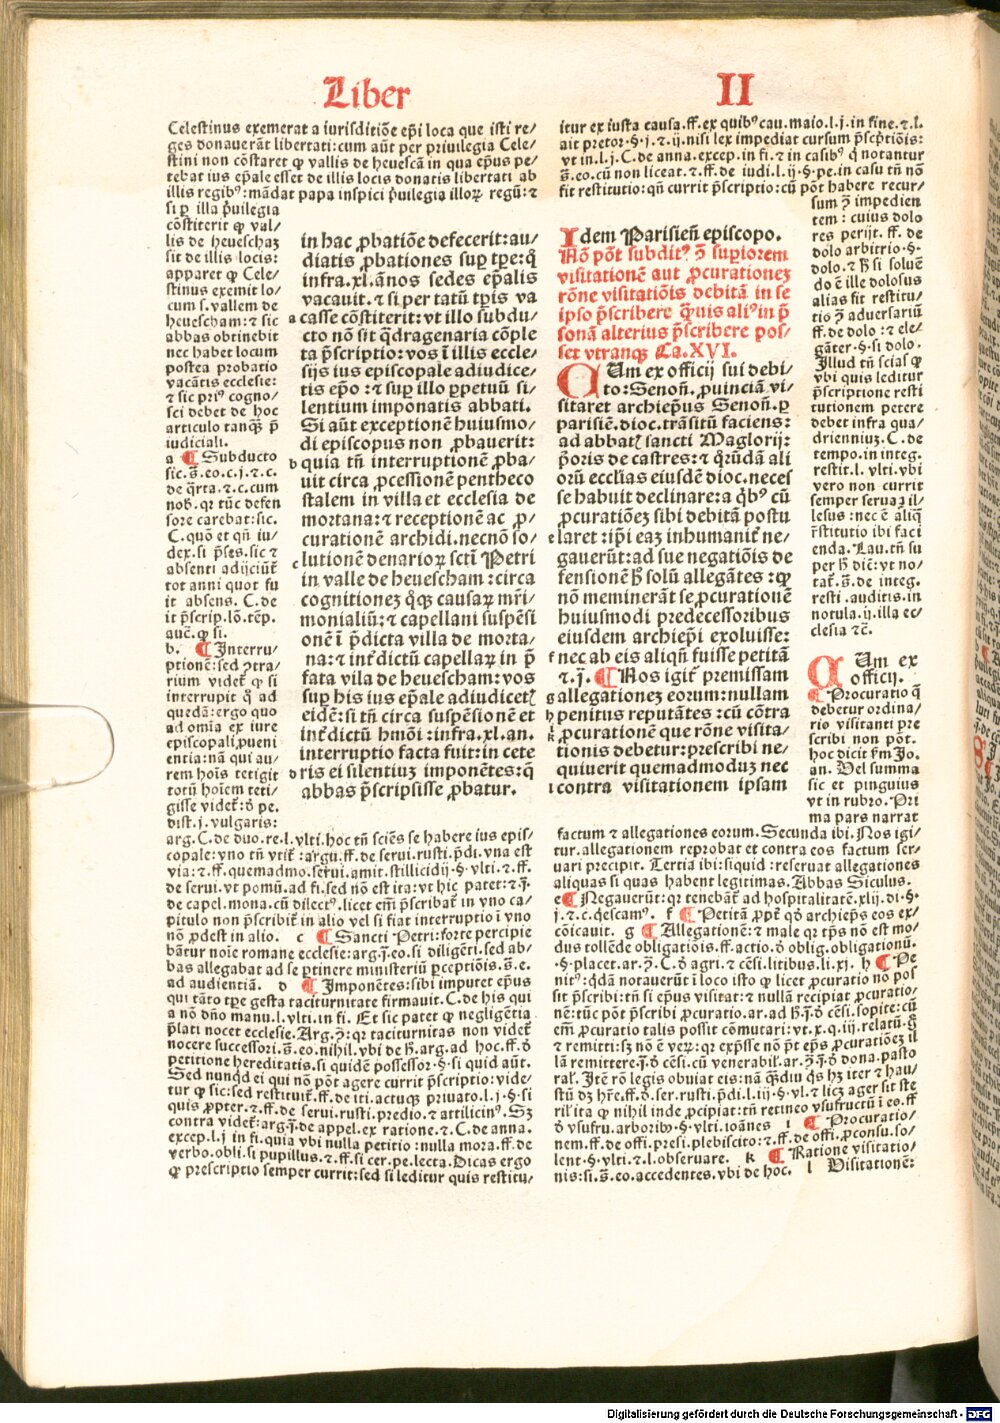 Liber II
Celestinus exemerat a iurisditiõe ep̃i loca que isti re/
ges donauerãt libertati: cum aũt per priuilegia Cele/
stini non cõstaret ꝙ vallis de heuescã in qua ep̃us pe/
tebat ius ep̃ale esset de illis locis donatis libertati ab
illis regibꝰ: mãdat papa inspici p̃uilegia illoꝝ regũ: ⁊
si ꝑ illa p̃uilegia
cõstiterit ꝙ val/
lis de heueschaz
sit de illis locis:
apparet ꝙ Cele/
stinus exemit lo/
cum s. vallem de
heuescham: ⁊ sic
abbas obtinebit
nec habet locum
postea probatio
vacãtis ecclesie:
⁊ sic priꝰ cogno/
sci debet de hoc
articulo tanqꝫ p̃
iudiciali.
a ¶ Subducto
sic. s̃. eo. c. j. ⁊ c.
de q̃rta. ⁊ c. cum
nob̃. qr tũc defen
sore carebat: sic.
C. quõ et qñ iu/
dex. si p̃ses. sic ⁊
absenti adijciũt̃
tot anni quot fu
it absens. C. de
p̃scrip. lõ. tẽp.
auč. ꝙ si.
b. ¶ Interru/
ptionẽ: sed ꝯtra/
rium videt̃ ꝙ si
interrupit q̊ ad
quedã: ergo quo
ad omia ex iure
episcopali ꝓueni
entia: nã qui au/
rem hoĩs tetigit
totũ hoĩem teti/
gisse videt̃: ð pe.
dist. j. vulgaris:
arg. C. de duo. re. l. vlti. hoc tñ sciẽs se habere ius epis/
copale: vno tñ vtit̃: argũ. ff. de serui. rusti. p̃di. vna est
via: ⁊ ff. quemadmo. serui. amit. stillicidij. §. vlti. ⁊ ff.
de serui. vt pomũ. ad fi. sed nõ est ita: vt hic patet: ⁊ j̃.
de capel. mona. cũ dilectꝰ. licet em̃ p̃scribat̃ in vno ca/
pitulo non p̃scribit̃ in alio vel si fiat interruptio ĩ vno
nõ ꝓdest in alio. c ¶ Sancti Petri: forte percipie
bãtur noĩe romane ecclesie: arg. j̃. eo. si diligẽti. sed ab/
bas allegabat ad se ꝑtinere ministeriũ ꝑceptiõis. s̃. e.
ad audientiã. d ¶ Imponẽtes: sibi imputet ep̃us
qui tãto tꝑe gesta taciturnitate firmauit. C. de his qui
a nõ dño manu. l. vlti. in fi. Et sic patet ꝙ negligẽtia
p̃lati nocet ecclesie. Arg. ꝯ̃: qr taciturnitas non videt̃
nocere successori. s̃. eo. nihil. vbi de h̃. arg. ad hoc. ff. ð
petitione hereditatis. si quidẽ possessor. §. si quid aũt.
Sed nunqd ei qui nõ põt agere currit p̃scriptio: vide/
tur ꝙ sic: sed restituit̃. ff. de iti. actuqꝫ priuato. l. j. §. si
quis ꝓpter. ⁊ ff. de serui. rusti. predio. ⁊ atilicinꝰ. Sꝫ
contra videt̃: arg. j̃. de appel. ex ratione. ⁊ C. de anna.
excep. l. j in fi. quia vbi nulla petitio: nulla mora. ff. de
verbo. obli. si pupillus. ⁊ ff. si cer. pe. lecta. Dicas ergo
ꝙ prescriptio semper currit: sed si leditur quis restitu/
in hac ꝓbatiõe defecerit: au/
diatis ꝓbationes suꝑ tꝑe: q̃
infra. xl. ãnos sedes ep̃alis
vacauit. ⁊ si per tatũ tp̃is va
a casse cõstiterit: vt illo subdu/
cto nõ sit q̃dragenaria cõple
ta p̃scriptio: vos ĩ illis eccle/
sijs ius episcopale adiudice/
tis ep̃o: ⁊ suꝑ illo ꝑpetuũ si/
lentium imponatis abbati.
Si aũt exceptionẽ huiusmo/
di episcopus non ꝓbauerit:
b quia tñ interruptionẽ ꝓba/
uit circa ꝓcessionẽ pentheco
stalem in villa et ecclesia de
mortana: ⁊ receptionẽ ac ꝓ/
curationẽ archidi. necnõ so/
c lutionẽ denarioꝝ sctĩ Petri
in valle de heuescham: circa
cognitionez q̊qꝫ causaꝝ mr̃i/
monialiũ: ⁊ capellani suspẽsi
onẽ ĩ p̃dicta villa de morta/
na: ⁊ int̃dictũ capellaꝝ in p̃
fata vila de heuescham: vos
suꝑ his ius ep̃ale adiudicetꝭ
eidẽ: si tñ circa suspẽsionẽ et
int̃dictũ hmõi: infra. xl. an.
interruptio facta fuit: in cete
d ris ei silentiuz imponẽtes: q̃
abbas p̃scripsisse ꝓbatur.
itur ex iusta causa. ff. ex quibꝰ cau. maio. l. j. in fine. ⁊. l.
ait pretor. §. j. ⁊. ij. nisi lex impediat cursum p̃scp̃tiõis:
vt in. l. j. C. de anna. excep. in fi. ⁊ in casibꝰ q̃ notantur
s̃. eo. cũ non liceat. ⁊ ff. de iudi. l. ij. §. pe. in casu tñ nõ
fit restitutio: qñ currit p̃scriptio: cũ põt habere recur/
sum ꝯ̃ impedien
tem: cuius dolo
res perijt. ff. de
dolo arbitrio. §.
dolo. ⁊ h̃ si soluẽ
do ẽ ille dolosus
alias fit restitu/
tio ꝯ̃ aduersariũ
ff. de dolo: ⁊ ele/
gãter. §. si dolo.
Illud tñ scias ꝙ
vbi quis leditur
p̃scriptione resti
tutionem petere
debet infra qua/
drienniuz. C. de
tempo. in integ.
restit. l. vlti. vbi
vero non currit
semper seruaꝫ il/
lesus: nec ẽ aliq̃
r̃stitutio ibi faci
enda. Lau. tñ su
per h̃ diẽ: vt no/
tat̃. s̃. de integ.
resti. auditis. in
notula. ij. illa ec/
clesia ⁊č.
Idem Parisieñ episcopo.
Nõ põt subditꝰ ꝯ̃ suꝑiorem
visitationẽ aut ꝓcurationez
rõne visitatiõis debitã in se
ipso p̃scribere q̃uis aliꝰ in ꝑ
sonã alterius p̃scribere pos/
set vtranqꝫ Ca. XVI.
CUm ex officij sui debi/
to: Senoñ. ꝓuinciã vi/
sitaret archiep̃us Senoñ. ꝑ
parisieñ. dioc. trãsitũ faciens:
ad abbatꝭ sancti Maglorij:
p̃oris de castres: ⁊ q̃rũdã ali
orũ ecclĩas eiusdẽ dioc. neces
se habuit declinare: a q̃bꝰ cũ
ꝓcuratiõez sibi debitã postu
e laret: ip̃i eaz inhumanit̃ ne/
gauerũt: ad sue negatiõis de
fensionẽ h̊ solũ allegãtes: ꝙ
nõ meminerãt se ꝓcurationẽ
huiusmodi predecessoribus
eiusdem archiep̃i exoluisse:
f nec ab eis aliqñ fuisse petitã
⁊. j̃. ¶ Nos igit̃ premissam
g allegationez eorum: nullam
h penitus reputãtes: cũ cõtra
i k ꝓcurationẽ que rõne visita/
tionis debetur: prescribi ne/
quiuerit quemadmoduz nec
l contra visitationem ipsam
CUm ex
officij.
¶ Procuratio q̃
debetur ordina/
rio visitanti pre
scribi non põt.
hoc dicit fm Jo.
an. Vel summa
sic et pinguius
vt in rubro. Pri
ma pars narrat
factum ⁊ allegationes eorum. Secunda ibi. Nos igi/
tur. allegationem reprobat et contra eos factum ser/
uari precipit. Tertia ibi: siquid: reseruat allegationes
aliquas si quas habent legitimas. Abbas Siculus.
e ¶ Negauerũt: qr tenebãt̃ ad hospitalitatẽ. xlij. di. §.
j. ⁊. c. q̃escamꝰ. f ¶ Petitã ꝓpt̃ qð archiep̃s eos ex/
cõicauit. g ¶ Allegationẽ: ⁊ male qr tp̃s nõ est mo/
dus tollẽde obligatiõis. ff. actio. ð oblig. obligationũ.
§. placet. ar. ꝯ̃. C. ð agri. ⁊ cẽsi. litibus. li. xj. h ¶ Pe
nitꝰ: qdã notauerũt ĩ loco isto ꝙ licet ꝓcuratio nõ pos
sit p̃scribi: tñ si ep̃us visitat: ⁊ nullã recipiat ꝓcuratio/
nẽ: tũc põt p̃scribi ꝓcuratio. ar. ad h̃. j̃. ð cẽsi. sopite: cũ
em̃ ꝓcuratio talis possit cõmutari: vt. x. q. iij. relatũ. g̊
⁊ remitti: sꝫ nõ ẽ veꝝ: qr exp̃sse nõ p̃t ep̃s ꝓcuratiõez il
lã remittere. j̃. ð cẽsi. cũ venerabil̃. ar. ꝯ̃. j̃. ð dona. pasto
ral̃. Itẽ rõ legis obuiat eis: nã q̃diu qs hꝫ iter ⁊ hau/
stũ dꝫ hr̃e. ff. ð ser. rusti. p̃di. l. iij. §. vl. ⁊ licꝫ ager sit ste
ril̃ ita ꝙ nihil inde ꝑcipiat: tñ retineo vsufructũ ĩ eo. ff
ð vsufru. arboribꝰ. §. vlti. ioãnes i ¶ Procuratio/
nem. ff. de offi. presi. plebiscito: ⁊. ff. de offi. ꝓconsu. so/
lent. §. vlti. ⁊. l. obseruare. k ¶ Ratione visitatio/
nis: si. s̃. eo. accedentes. vbi de hoc. l Visitationẽ:
Digitalisierung gefördert durch die Deutsche Forschungsgemeinschaft - DFG